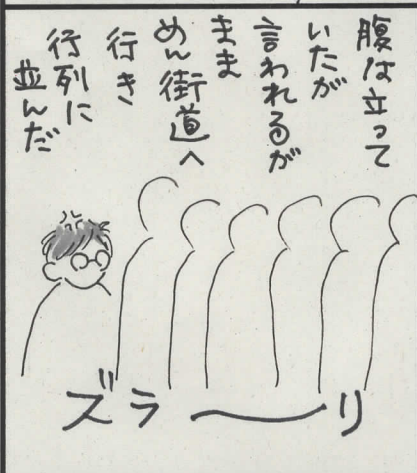 腹は立って
いたが
言われるが
まま
めん街道へ
行き
行列に
並んだ
ズラ〜リ